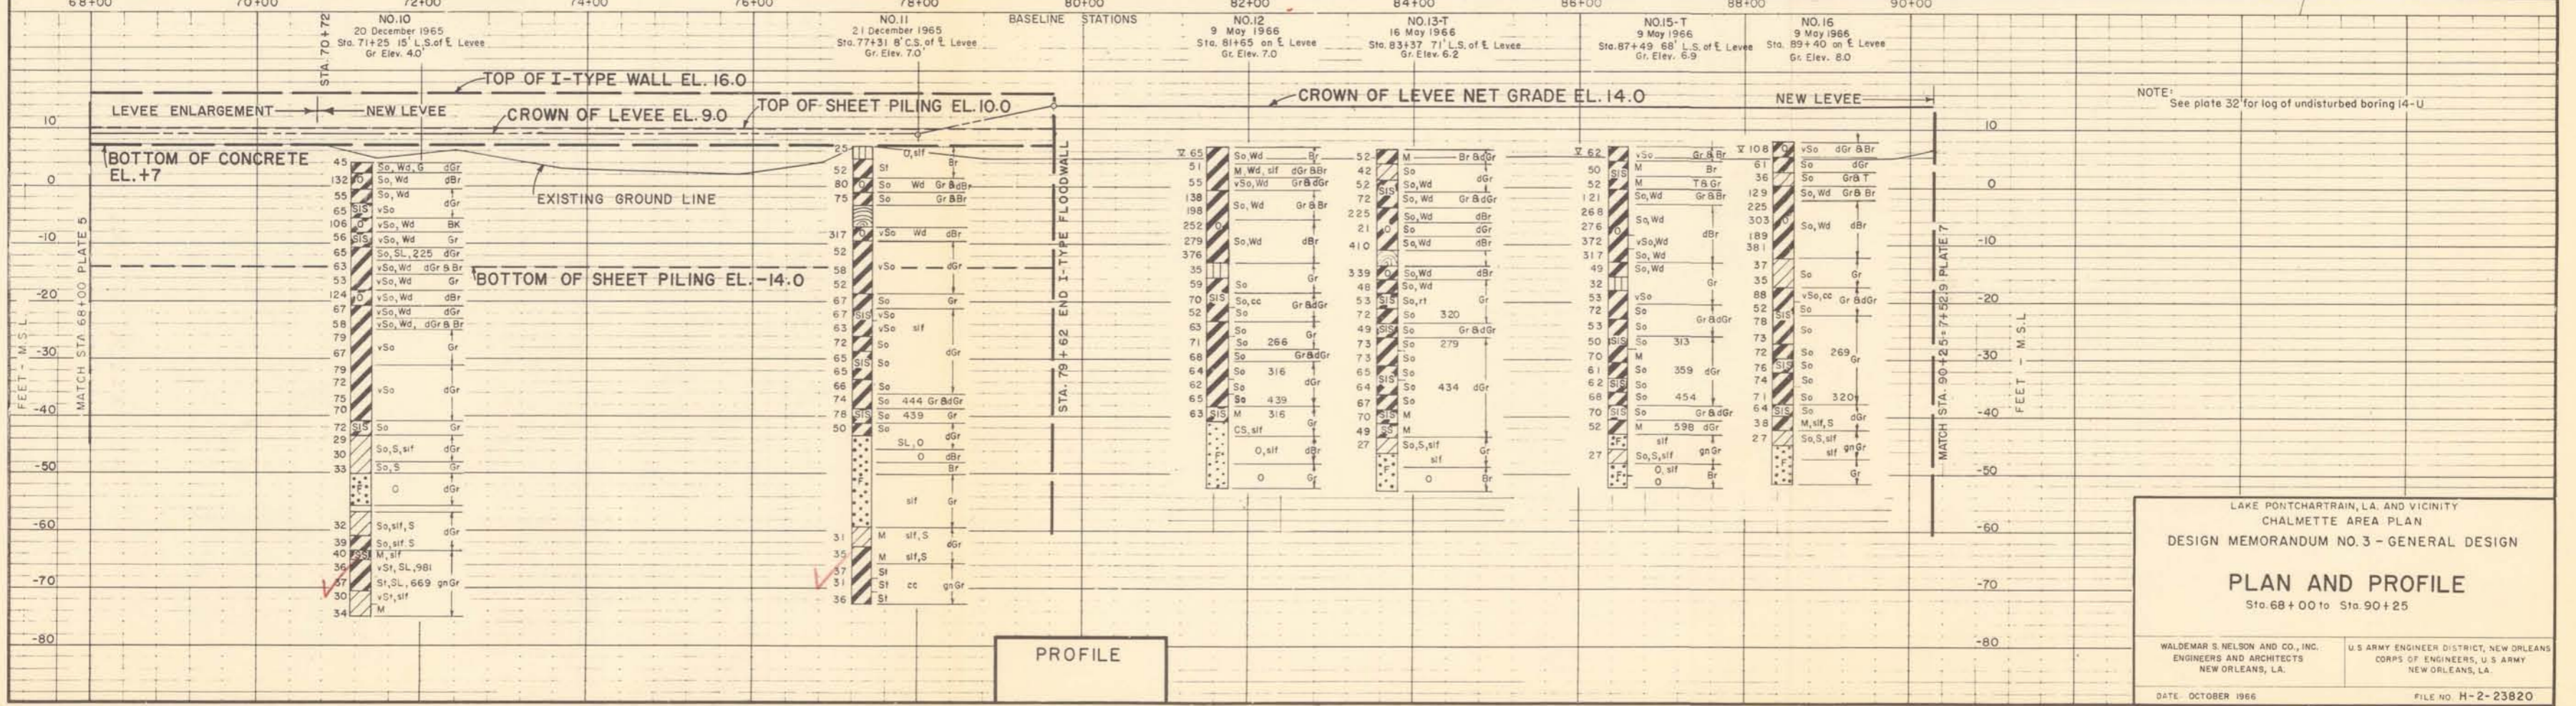 68+00 70+00 72+00 74+00 76+00 78+00 80+00 82+00 84+00 86+00 88+00 90+00
BASELINE STATIONS
STA. 70+72
NO.10
20 December 1965
Sta. 71+25 15' L.S. of ℄ Levee
Gr Elev. 4.0'
NO.11
21 December 1965
Sta. 77+31 8' C.S. of ℄ Levee
Gr. Elev. 7.0'
NO.12
9 May 1966
Sta. 81+65 on ℄ Levee
Gr. Elev. 7.0
NO.13-T
16 May 1966
Sta. 83+37 71' L.S. of ℄ Levee
Gr. Elev. 6.2
NO.15-T
9 May 1966
Sta. 87+49 68' L.S. of ℄ Levee
Gr. Elev. 6.9
NO.16
9 May 1966
Sta. 89+40 on ℄ Levee
Gr. Elev. 8.0
TOP OF I-TYPE WALL EL. 16.0
LEVEE ENLARGEMENT
NEW LEVEE
CROWN OF LEVEE EL. 9.0
TOP OF SHEET PILING EL. 10.0
CROWN OF LEVEE NET GRADE EL. 14.0
NEW LEVEE
BOTTOM OF CONCRETE
EL. +7
EXISTING GROUND LINE
BOTTOM OF SHEET PILING EL. -14.0
STA. 79+62 END I-TYPE FLOODWALL
MATCH STA 68+00 PLATE 5
FEET - M.S.L.
10
0
-10
-20
-30
-40
-50
-60
-70
-80
45 So, Wd, G dGr
132 O So, Wd dBr
55 So, Wd
dGr
65 SIS vSo
106 O vSo, Wd BK
56 SIS vSo, Wd Gr
65 So, SL, 225 dGr
63 vSo, Wd dGr & Br
53 vSo, Wd Gr
124 O vSo, Wd dBr
67 vSo, Wd dGr
58 vSo, Wd, dGr & Br
79
67 vSo Gr
79
72 vSo dGr
75
70
72 SIS So Gr
29
30 So, S, slf dGr
33 So, S Gr
O dGr
32 So, slf, S
dGr
39 So, slf, S
40 SS M, slf
36 vSt, SL, 981
37 St, SL, 669 gnGr
30 vSt, slf
34 M
25 O, slf
Br
52 St
80 O So Wd Gr & dBr
75 So Gr & Br
317 O vSo Wd dBr
52
58 vSo dGr
52
67 So Gr
67 SIS vSo
63 vSo slf
72 So
dGr
65 SIS So
65
66 So
74 So 444 Gr & dGr
78 SIS So 439 Gr
50 So
dGr
SL, O
O dBr
Br
F
slf Gr
31 M slf, S
dGr
35 M slf, S
37 St
31 St cc gnGr
36 St
65 So, Wd Br
51 M, Wd, slf dGr & Br
55 vSo, Wd Gr & dGr
138
198 So, Wd Gr & Br
252 O
279 So, Wd dBr
376
35
Gr
59 So
70 SIS So, cc Gr & dGr
52 So
63 So
Gr
71 So 266
68 So Gr & dGr
64 So 316
dGr
62 So
65 So 439
63 SIS M 316
Gr
CS, slf
O, slf dBr
O Gr
52 M Br & dGr
42 So
dGr
52 SIS So, Wd
72 So, Wd Gr & dGr
225 So, Wd dBr
21 O So dGr
410 So, Wd dBr
339 O So, Wd dBr
48 So, Wd
53 SIS So, rt Gr
72 So 320
49 SIS So Gr & dGr
73 So 279
73 So
65 So
SIS
64 So 434 dGr
67 So
70 SIS M
49 SS M
27 So, S, slf
Gr
F slf
O Br
62 vSo Gr & Br
50 SIS M Br
52 M T & Gr
121 So, Wd Gr & Br
268
276 O So, Wd
dBr
372 vSo, Wd
317 So, Wd
49 So, Wd
32 Gr
53 vSo
72 So
Gr & dGr
53 So
50 SIS So 313
70 M
61 So 359 dGr
62 SIS So
68 So 454
70 SIS So Gr & dGr
52 M 598 dGr
F slf
gnGr
27 So, S, slf
F O, slf
Br
O
108 O vSo dGr & Br
61 So dGr
36 So Gr & T
129 So, Wd Gr & Br
225
303 O So, Wd dBr
189
381
37
35 So Gr
88 vSo, cc Gr & dGr
52 So
SIS
78 So
72 So 269
Gr
76 SIS So
74 So
71 So 320
64 SIS So
dGr
38 M, slf, S
27 So, S, slf
slf gnGr
F
Gr
MATCH STA. 90+25=7+52.9 PLATE 7
FEET - M.S.L.
10
0
-10
-20
-30
-40
-50
-60
-70
-80
NOTE:
See plate 32 for log of undisturbed boring 14-U
PROFILE
LAKE PONTCHARTRAIN, LA. AND VICINITY
CHALMETTE AREA PLAN
DESIGN MEMORANDUM NO. 3 - GENERAL DESIGN
PLAN AND PROFILE
Sta. 68+00 to Sta. 90+25
WALDEMAR S. NELSON AND CO., INC.
ENGINEERS AND ARCHITECTS
NEW ORLEANS, LA.
U.S ARMY ENGINEER DISTRICT, NEW ORLEANS
CORPS OF ENGINEERS, U.S ARMY
NEW ORLEANS, LA.
DATE: OCTOBER 1966
FILE NO. H-2-23820